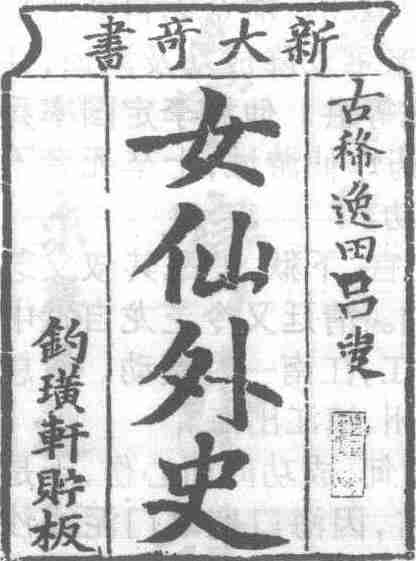 新大竒書
古稀逸田呂叟
女仙外史
釣璜軒貯板